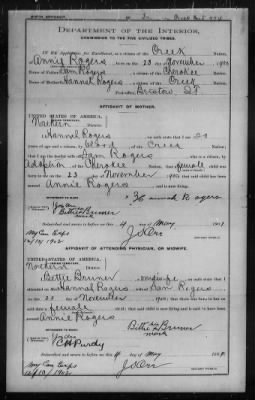 BIRTH AFFIDAVIT.
DEPARTMENT OF THE INTERIOR,
COMMISSION TO THE FIVE CIVILIZED TRIBES.
IN RE Application for Enrollment, as a citizen of the Creek Nation,
of Annie Rogers, born on the 23 day of November, 190
Name of Father: Sam Rogers a citizen of the Cherokee Nation.
Name of Mother: Hannah Rogers a citizen of the Creek Nation.
Post-office Bristow I.T.
AFFIDAVIT OF MOTHER.
UNITED STATES OF AMERICA,
Northern District.
I, Hannah Rogers, on oath state that I am
years of age and a citizen, by blood, of the Creek Nation;
that I am the lawful wife of Sam Rogers, who is a citizen, by
adoption of the Cherokee Nation; that a female child was
born to me on 23 day of November, 190 that said child has been
named Annie Rogers, and is now living.
Hannah Rogers
WITNESSES TO MARK:
Jno Orr
Bettie Bruner
Subscribed and sworn to before me this 4 day of May, 190
My Com Exps
J N Orr
AFFIDAVIT OF ATTENDING PHYSICIAN, OR MIDWIFE.
UNITED STATES OF AMERICA,
Northern District.
I, Bettie Bruner, a midwife, on oath state that I
attended on Mrs. Hannah Rogers, wife of Sam Rogers
on the 23 day of November, 190 that there was born to her on
said date a female child; that said child is now living and is said to have been
named Annie Rogers
Bettie her x mark Bruner
WITNESSES TO MARK:
Jno Orr
C H Purdy
Subscribed and sworn to before me this 4 day of May, 190
My Com Exps
J N Orr